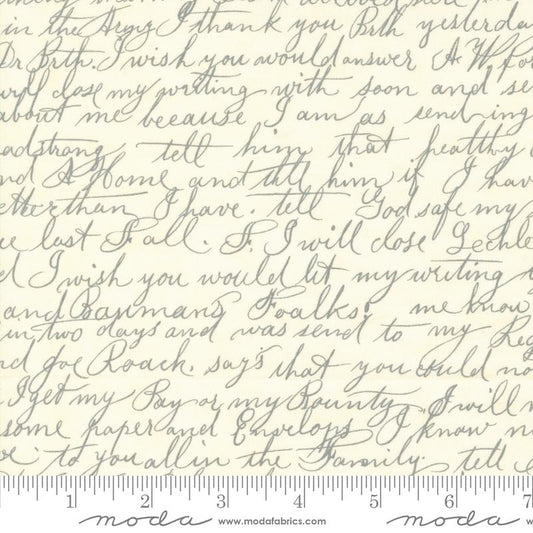 in the Army I thank you Brth yesterda
Dr Brth. I wish you would answer A W, for
will close my writing with soon and se
about me because I am as sending
adstrong tell him that healthy
nd A Home and till him if I hav
etter than I have. tell God safe my
ce last Fall. F. I will close Lechle
d I wish you would lit my writing
and Baumans Foalks, me know
in two days and was send to my Reg
nd Joe Roach. says that you could no
I get my Pay or my Bounty, I will
some paper and Envelops I know n
ve to you all in the Family. tell
1 2 3 4 5 6 7
moda www.modafabrics.com moda